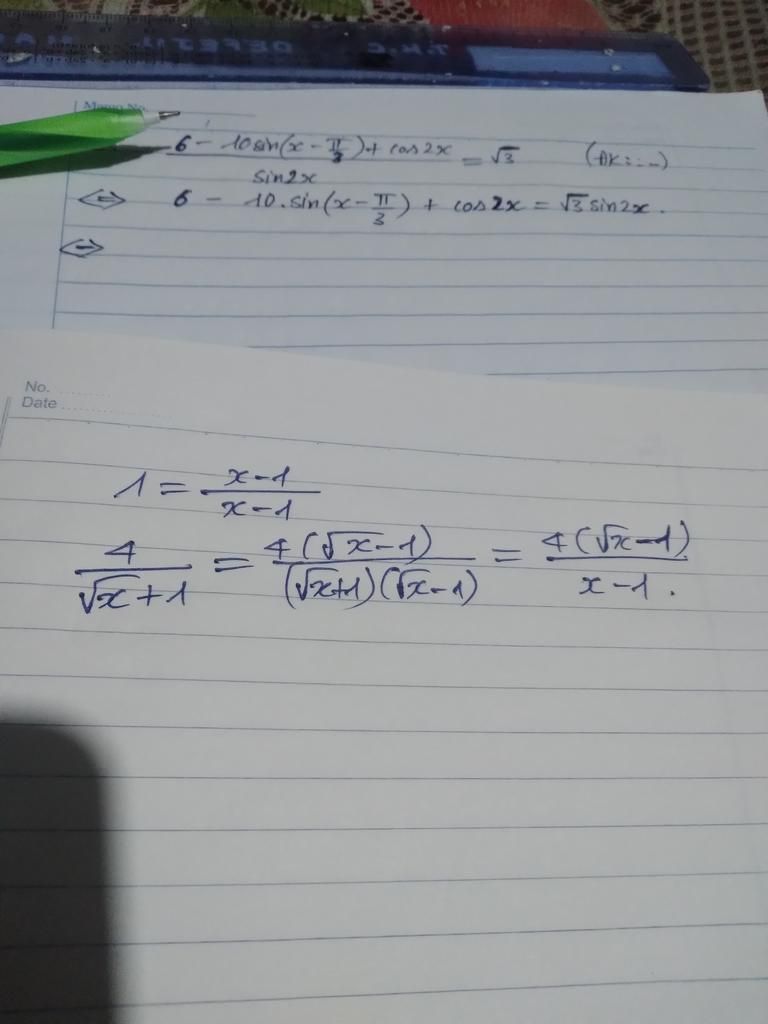 Memo No.
6 - 10sin(x - π/3) + cos2x / sin2x = √3 (ĐK: ...)
⇔ 6 - 10.sin(x - π/3) + cos2x = √3 sin2x.
⇔
No. ........
Date ........
1 = x-1 / x-1
4 / √x+1 = 4(√x-1) / (√x+1)(√x-1) = 4(√x-1) / x-1 .